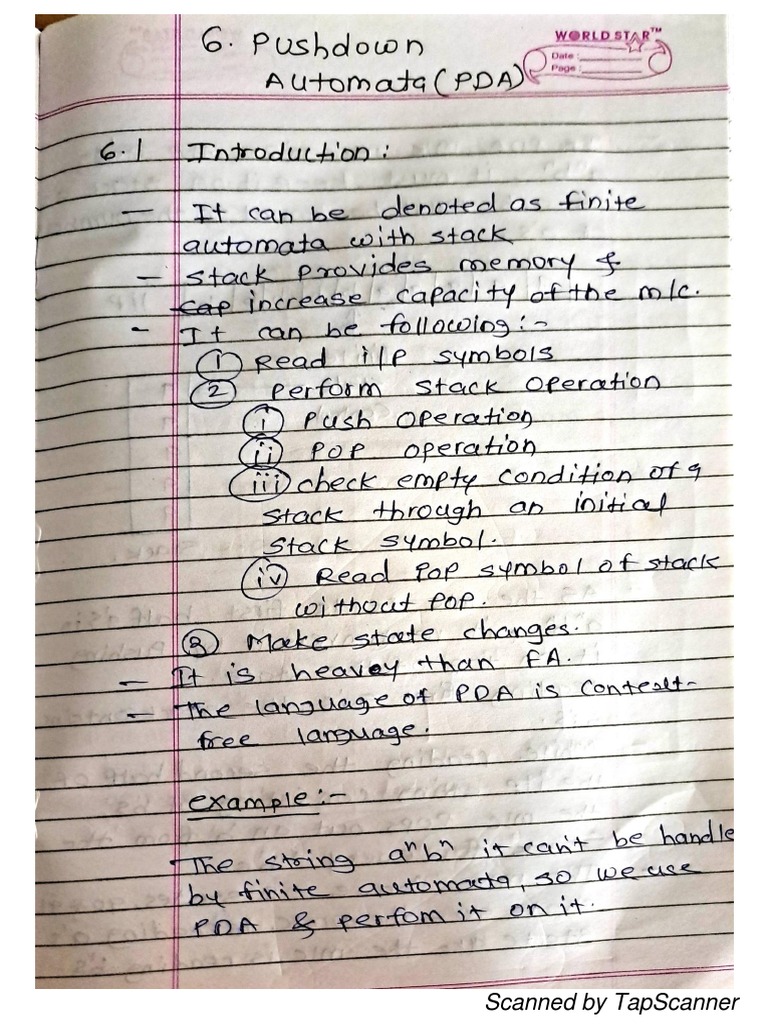 6. Pushdown
Automata (PDA)
WORLD STAR™
Date :
Page :
6.1 Introduction :
— It can be denoted as finite
automata with stack
- stack provides memory &
cap increase capacity of the m/c.
- It can be following :-
① Read i/p symbols
② perform stack operation
ⓘ push operation
ⓘⓘ pop operation
iii check empty condition of a
stack through an initial
stack symbol.
iv Read pop symbol of stack
without pop.
③ Make state changes.
- It is heavey than FA.
- The language of PDA is context-
free language.
example :-
The string aⁿbⁿ it can't be handle
by finite automata, so we use
PDA & perfom it on it.
Scanned by TapScanner